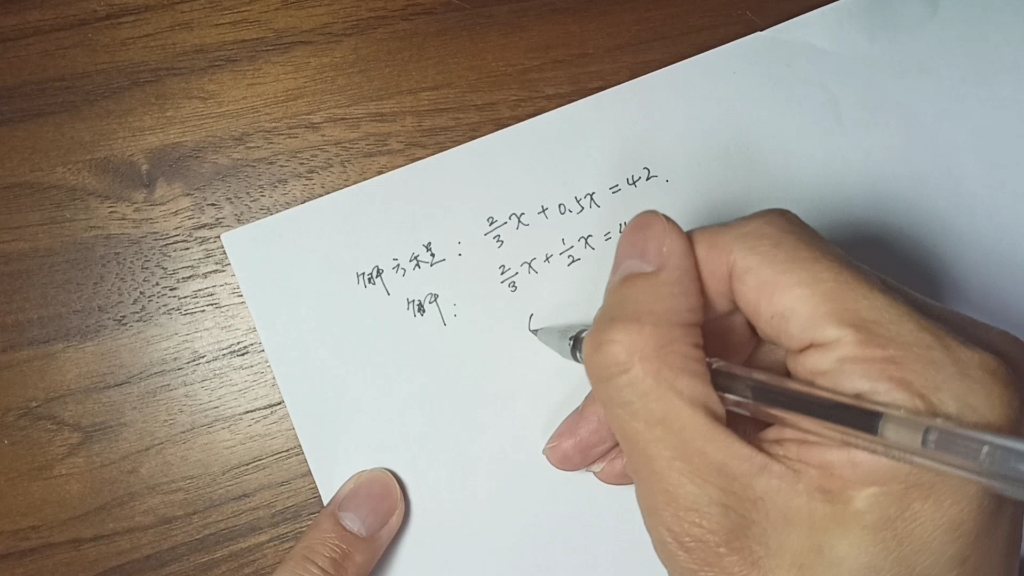 解方程: 2/3 x + 0.5x = 42.
解: 2/3 x + 1/2 x = 4
(